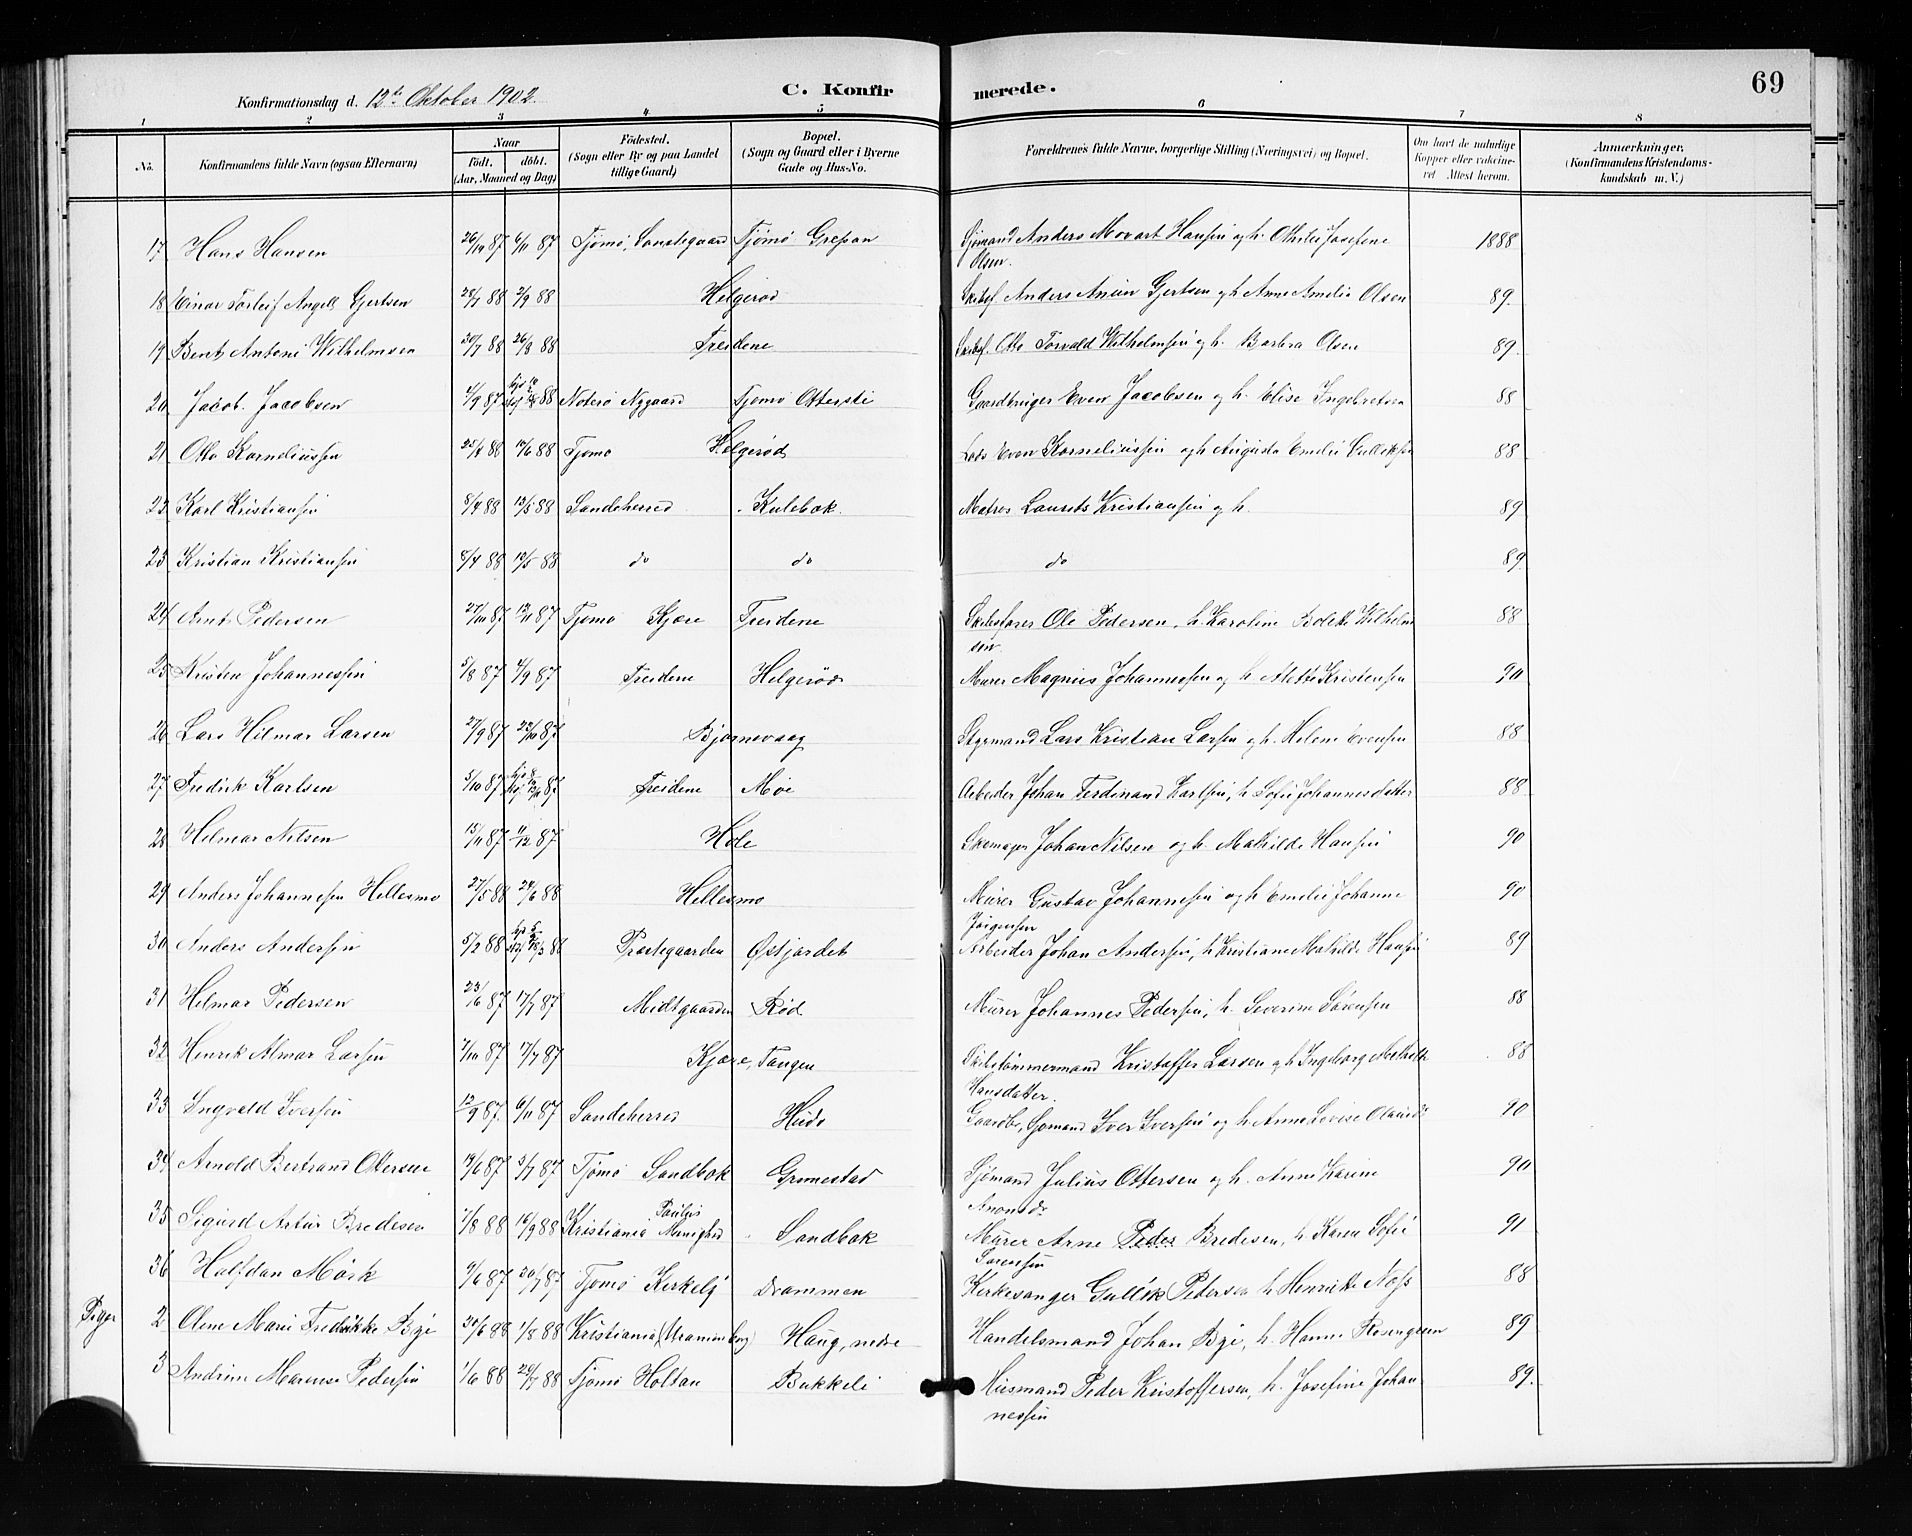 69
Konfirmationsdag d. 12te Oktober 1902. C. Konfirmerede.
1 2 3 4 5 6 7 8
No. Konfirmandens fulde Navn (ogsaa Efternavn) Naar födt. döbt. (Aar, Maaned og Dag) Födested. (Sogn eller By og paa Landet tillige Gaard) Bopæl. (Sogn og Gaard eller i Byerne Gade og Hus-No. Forældrenes fulde Navne, borgerlige Stilling (Næringsvei) og Bopæl. Om havt de naturlige Kopper eller vaccineret Attest herom. Anmærkninger. (Konfirmandens Kristendomskundskab m. V.)
17 Hans Hansen 26/10 87 6/11 87 Tjømø, Tjømø Grepan Sjømand Anders Mozart Hansen og h. Othilie Josefine 1888
Olsen.
18 Einar Torleif Angell Gjertsen 28/7 88 2/9 88 Helgerød Skibsf. Anders Anton Gjertsen og h. Anne Amelia Olsen 89.
19 Bernt Antoni Wilhelmsen 30/7 88 26/8 88 Treidene Skibsf. Otto Torvald Wilhelmsen og h. Barbra Olsen 89.
20 Jacob Jacobsen 1/9 87 88 Noterø Nygaard Tjømø Ottersti Gaardbruger Even Jacobsen og h. Elise Ingebretsen 88
21 Otto Korneliussen 25/4 88 10/6 88 Tjømø Helgerød Lods Even Korneliussen og h. Augusta Emilie Gulliksen 88
22 Karl Kristiansen 8/4 88 13/5 88 Sandeherred Kulebok. Matros Laurits Kristiansen og h. 89
23 Kristian Kristiansen 8/4 88 13/5 88 do do do 89.
24 Arnt Pedersen 27/10 87 13/11 87 Tjømø Kjære Treidene Skibsfører Ole Pedersen, h. Karoline Bolette Wilhelm 88
sen.
25 Kristen Johannessen 5/8 87 4/9 87 Treidene Helgerød Murer Magnus Johannessen og h. Mette Kristensen 90
26 Lars Hilmar Larsen 27/9 87 23/10 87 Bjørnevaag Styrmand Lars Kristian Larsen og h. Helene Evensen 88
27 Fredrik Karlsen 5/10 87 87 Treidene Moe Arbeider Johan Ferdinand Karlsen, h. Sofie Johannesdatter 88
28 Hilmar Nilsen 15/11 87 11/12 87 Hole Skomager Johan Nilsen og h. Mathilde Hansen 90
29 Anders Johannesen Hellesmo 27/5 88 24/6 88 Hellesmo Murer Gustav Johannesen og h. Emilie Johanne 90
Jørgensen
30 Anders Andersen 5/2 88 88 Præstegaarden Østjordet Arbeider Johan Andersen, h. Kristiane Mathilde Hansen 89
31 Hilmar Pedersen 23/6 87 17/7 87 Midtgaarden Rød Murer Johannes Pedersen, h. Severine Sørensen 88
32 Henrik Almar Larsen 7/10 87 17/7 87 Kjære, Tangen Skibstømmermand Kristoffer Larsen og h. Ingeborg Mathilde 88
Hansdatter.
33 Ingvald Iversen 12/9 87. 6/11 87 Sandeherred Huidø Gaardbr, Sjømand Iver Iversen og h. Anne Lovise Olausdr 90
34 Arnold Bertrand Ottersen 14/6 87 3/7 87 Tjømø Sandbok Grimestad Sjømand Julius Ottersen og h. Anne Karine 90
35 Sigurd Artur Bredesen 7/8 88 16/9 88 Kristiania Paulus Menighed Sandbok Murer Arne Peder Bredesen, h. Karen Sofie 91
Sørensen
36 Halfdan Mørk 9/6 87 30/7 87 Tjømø Kirkely Drammen Kirkesanger Gullik Pedersen h. Henriette Næss 88
Piger 2 Olene Marie Fredrikke Bye 20/6 88 1/8 88 Kristiania (Uranienborg) Haug, nedre Handelsmand Johan Bye, h. Hanne Rosengreen 89
3 Andrine Marense Pedersen 1/6 88 20/7 88 Tjømø Holtan Bakkeli Husmand Peder Kristoffersen, h. Josefine Johan 89.
nessen